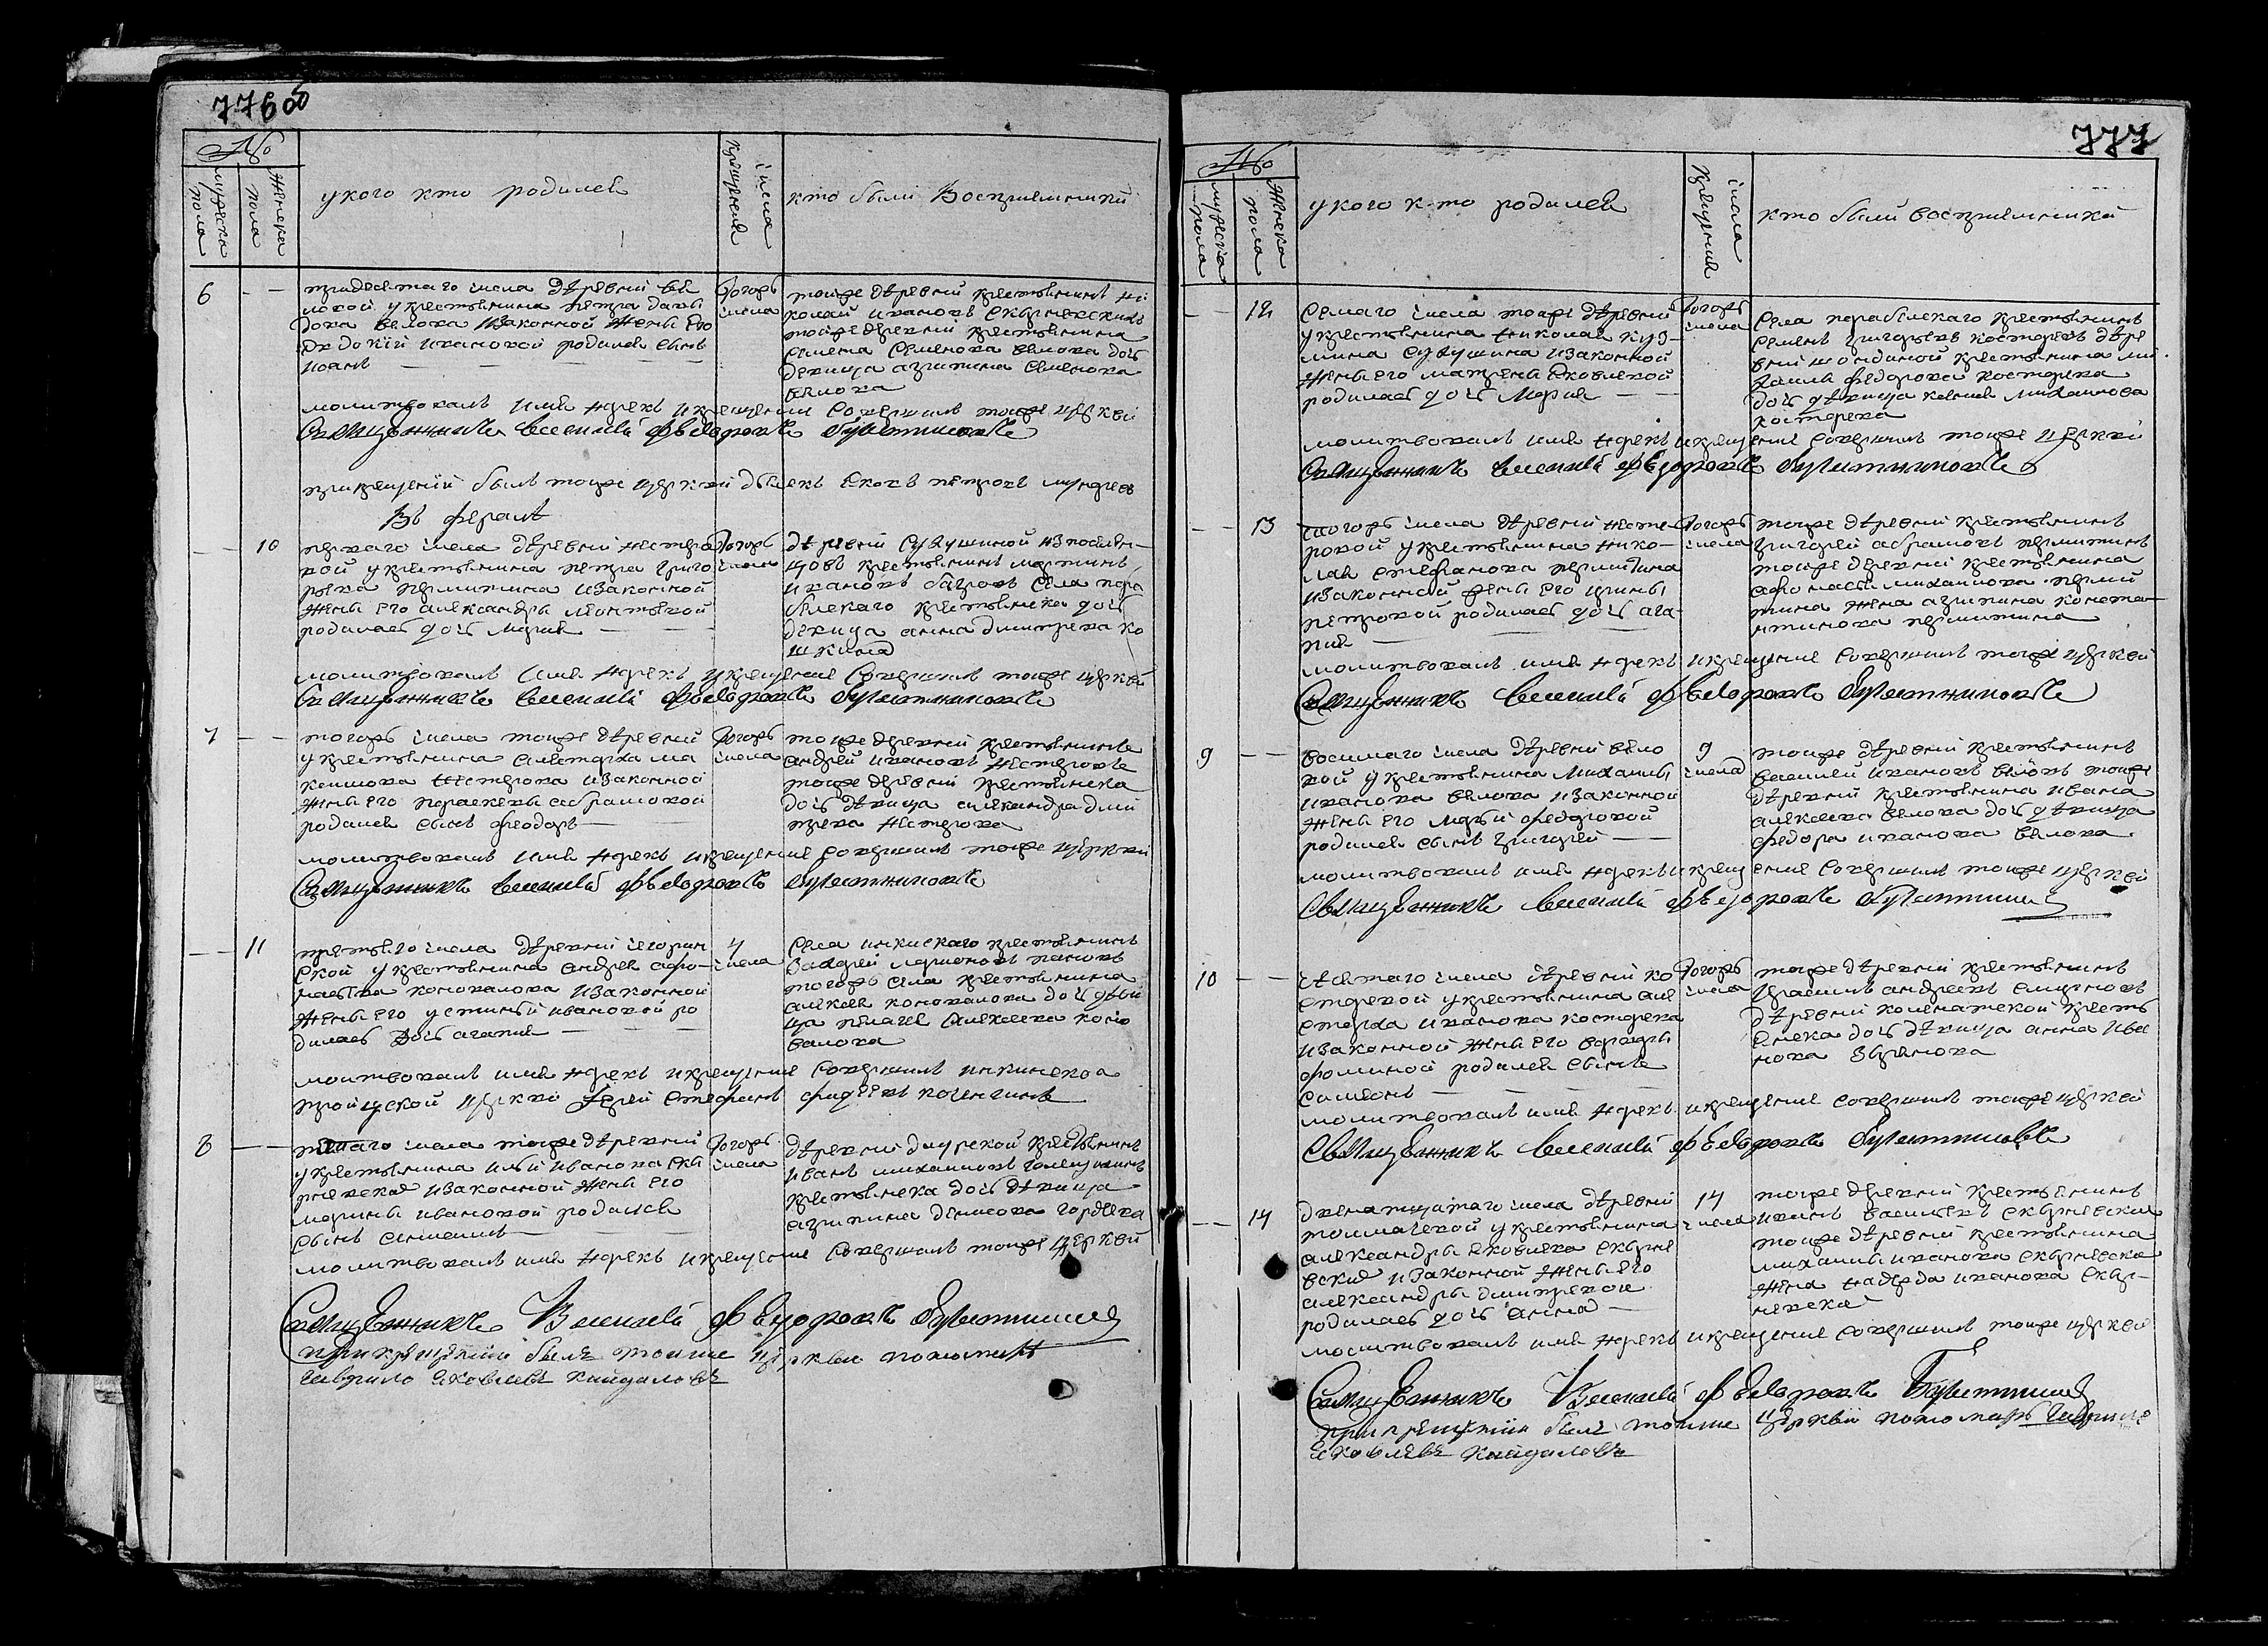 776 об
№
мужеска пола
женска пола
у кого кто родился
числа крещения
кто были Восприемники
6
тридесятаго числа деревни бе
ловой у крестьянина петра давы
дова белова изаконной жены его
евдокии ивановой родился сынъ
иоанъ
тогожъ
числа
тоеже деревни крестьянинъ ни
колай ивановъ скирневскихъ
тоеже деревни крестьянина
семена семенова белова дочь
девица агрипина семенова
белова
молитвовалъ имя нарекъ икрещение совершилъ тоеже церкви
Священникъ василий феодоровъ
прикрещении былъ тоеже церкви дьячекъ яковъ петровъ
въ феврале
10
перваго числа деревни нестеро
вой у крестьянина петра григо
рьева пермитина изаконной
жены его александры леонтьевой
родилась дочь мария
тогожъ
числа
деревни сухушиной изпоселен
цовъ крестьянинъ мартинъ
ивановъ села пара
бельскаго крестьянска дочь
девица анна дмитрева ко
шкина
молитвовалъ имя нарекъ икрещение совершилъ тоеже церкви
Священникъ василий феодоровъ
7
тогожъ числа тоеже деревни
у крестьянина алистарха ма
ксимова нестерова изаконной
жены его парасковьи абрамовой
родился сынъ феодоръ
тогожъ
числа
тоеже деревни крестьянинъ
андрей ивановъ нестеровъ
тоеже деревни крестьянска
дочь девица александра дми
трева нестерова
молитвовалъ имя нарекъ икрещение совершилъ тоеже церкви
Священникъ василий феодоровъ
11
третьяго числа деревни
ской у крестьянина андрея афо
насьева коновалова изаконной
жены его устиньи ивановой ро
дилась дочь агапия
4
числа
села инкинскаго крестьянинъ
пановъ
тогожъ села крестьянина
алексея коновалова дочь деви
ца пелагея алексеева коно
валова
молитвовалъ имя нарекъ икрещение совершилъ инкинской
троицской церкви иерей стефанъ
8
пятаго числа тоеже деревни
у крестьянина ильи иванова ски
рневска изаконной жены его
марины ивановой родился
сынъ
тогожъ
числа
деревни крестьянинъ
иванъ михаиловъ голещихинъ
крестьянска дочь девица
агрипина денисова гордеева
молитвовалъ имя нарекъ икрещение совершилъ тоеже церкви
Священникъ Василий феодоровъ
при крещении былъ тояже церкви пономарь
Гаврило Яковлевъ кайдаловъ
777
№
мужеска пола
женска пола
у кого кто родился
числа крещения
кто были восприемники
12
семаго числа тоеже деревни
у крестьянина николая куз
мина сухушина изаконной
жены его матрены яковлевой
родилась дочь Мария
тогожъ
числа
Села парабельскаго крестьянинъ
семенъ григорьевъ костаревъ дере
вни шондиной крестьянина ми
хаилы федорова костарева
дочь девица ксения михаилова
костарева
молитвовалъ имя нарекъ икрещение совершилъ тоеже церкви
Священникъ василий феодоровъ
13
тогожъ числа деревни несте
ровой у крестьянина нико
лая стефанова пермитина
изаконной жены его ирины
петровой родилась дочь ага
пия
тогожъ
числа
тоеже деревни крестьянинъ
григорей абрамовъ пермитинъ
тоеже деревни крестьянина
афонасья михаилова перми
тина жена агрипина конста
нтинова пермитина
молитвовалъ имя нарекъ икрещение совершилъ тоеже церкви
Священникъ василий феодоровъ
9
восмаго числа деревни бело
вой у крестьянина михаилы
иванова белова изаконной
жены его марьи федоровой
родился сынъ григорей
9
числа
тоеже деревни крестьянинъ
василей ивановъ беловъ тоеже
деревни крестьянина ивана
алексеева белова дочь девица
федора иванова белова
молитвовалъ имя нарекъ икрещение совершилъ тоеже церкви
Священникъ василий феодоровъ
10
десятаго числа деревни ко
старевой у крестьянина али
старха иванова костарева
изаконной жены его варвары
фоминой родился сынъ
симеонъ
тогожъ
числа
тоеже деревни крестьянинъ
герасимъ андреевъ
деревни крестья
нска дочь девица анна ива
нова
молитвовалъ имя нарекъ икрещение совершилъ тоеже церкви
Священникъ василий феодоровъ
14
двенатцатаго числа деревни
толмачевой у крестьянина
александры яковлева скирне
вска изаконной жены его
александры дмитревой
родилась дочь анна
14
числа
тоеже деревни крестьянинъ
иванъ васильевъ скирневски
тоеже деревни крестьянина
михаилы иванова скирневска
жена надежда иванова скир
невска
молитвовалъ имя нарекъ икрещение совершилъ тоеже церкви
Священникъ Василий феодоровъ
при крещении былъ тояже церкви пономарь Гаврило
Яковлевъ кайдаловъ